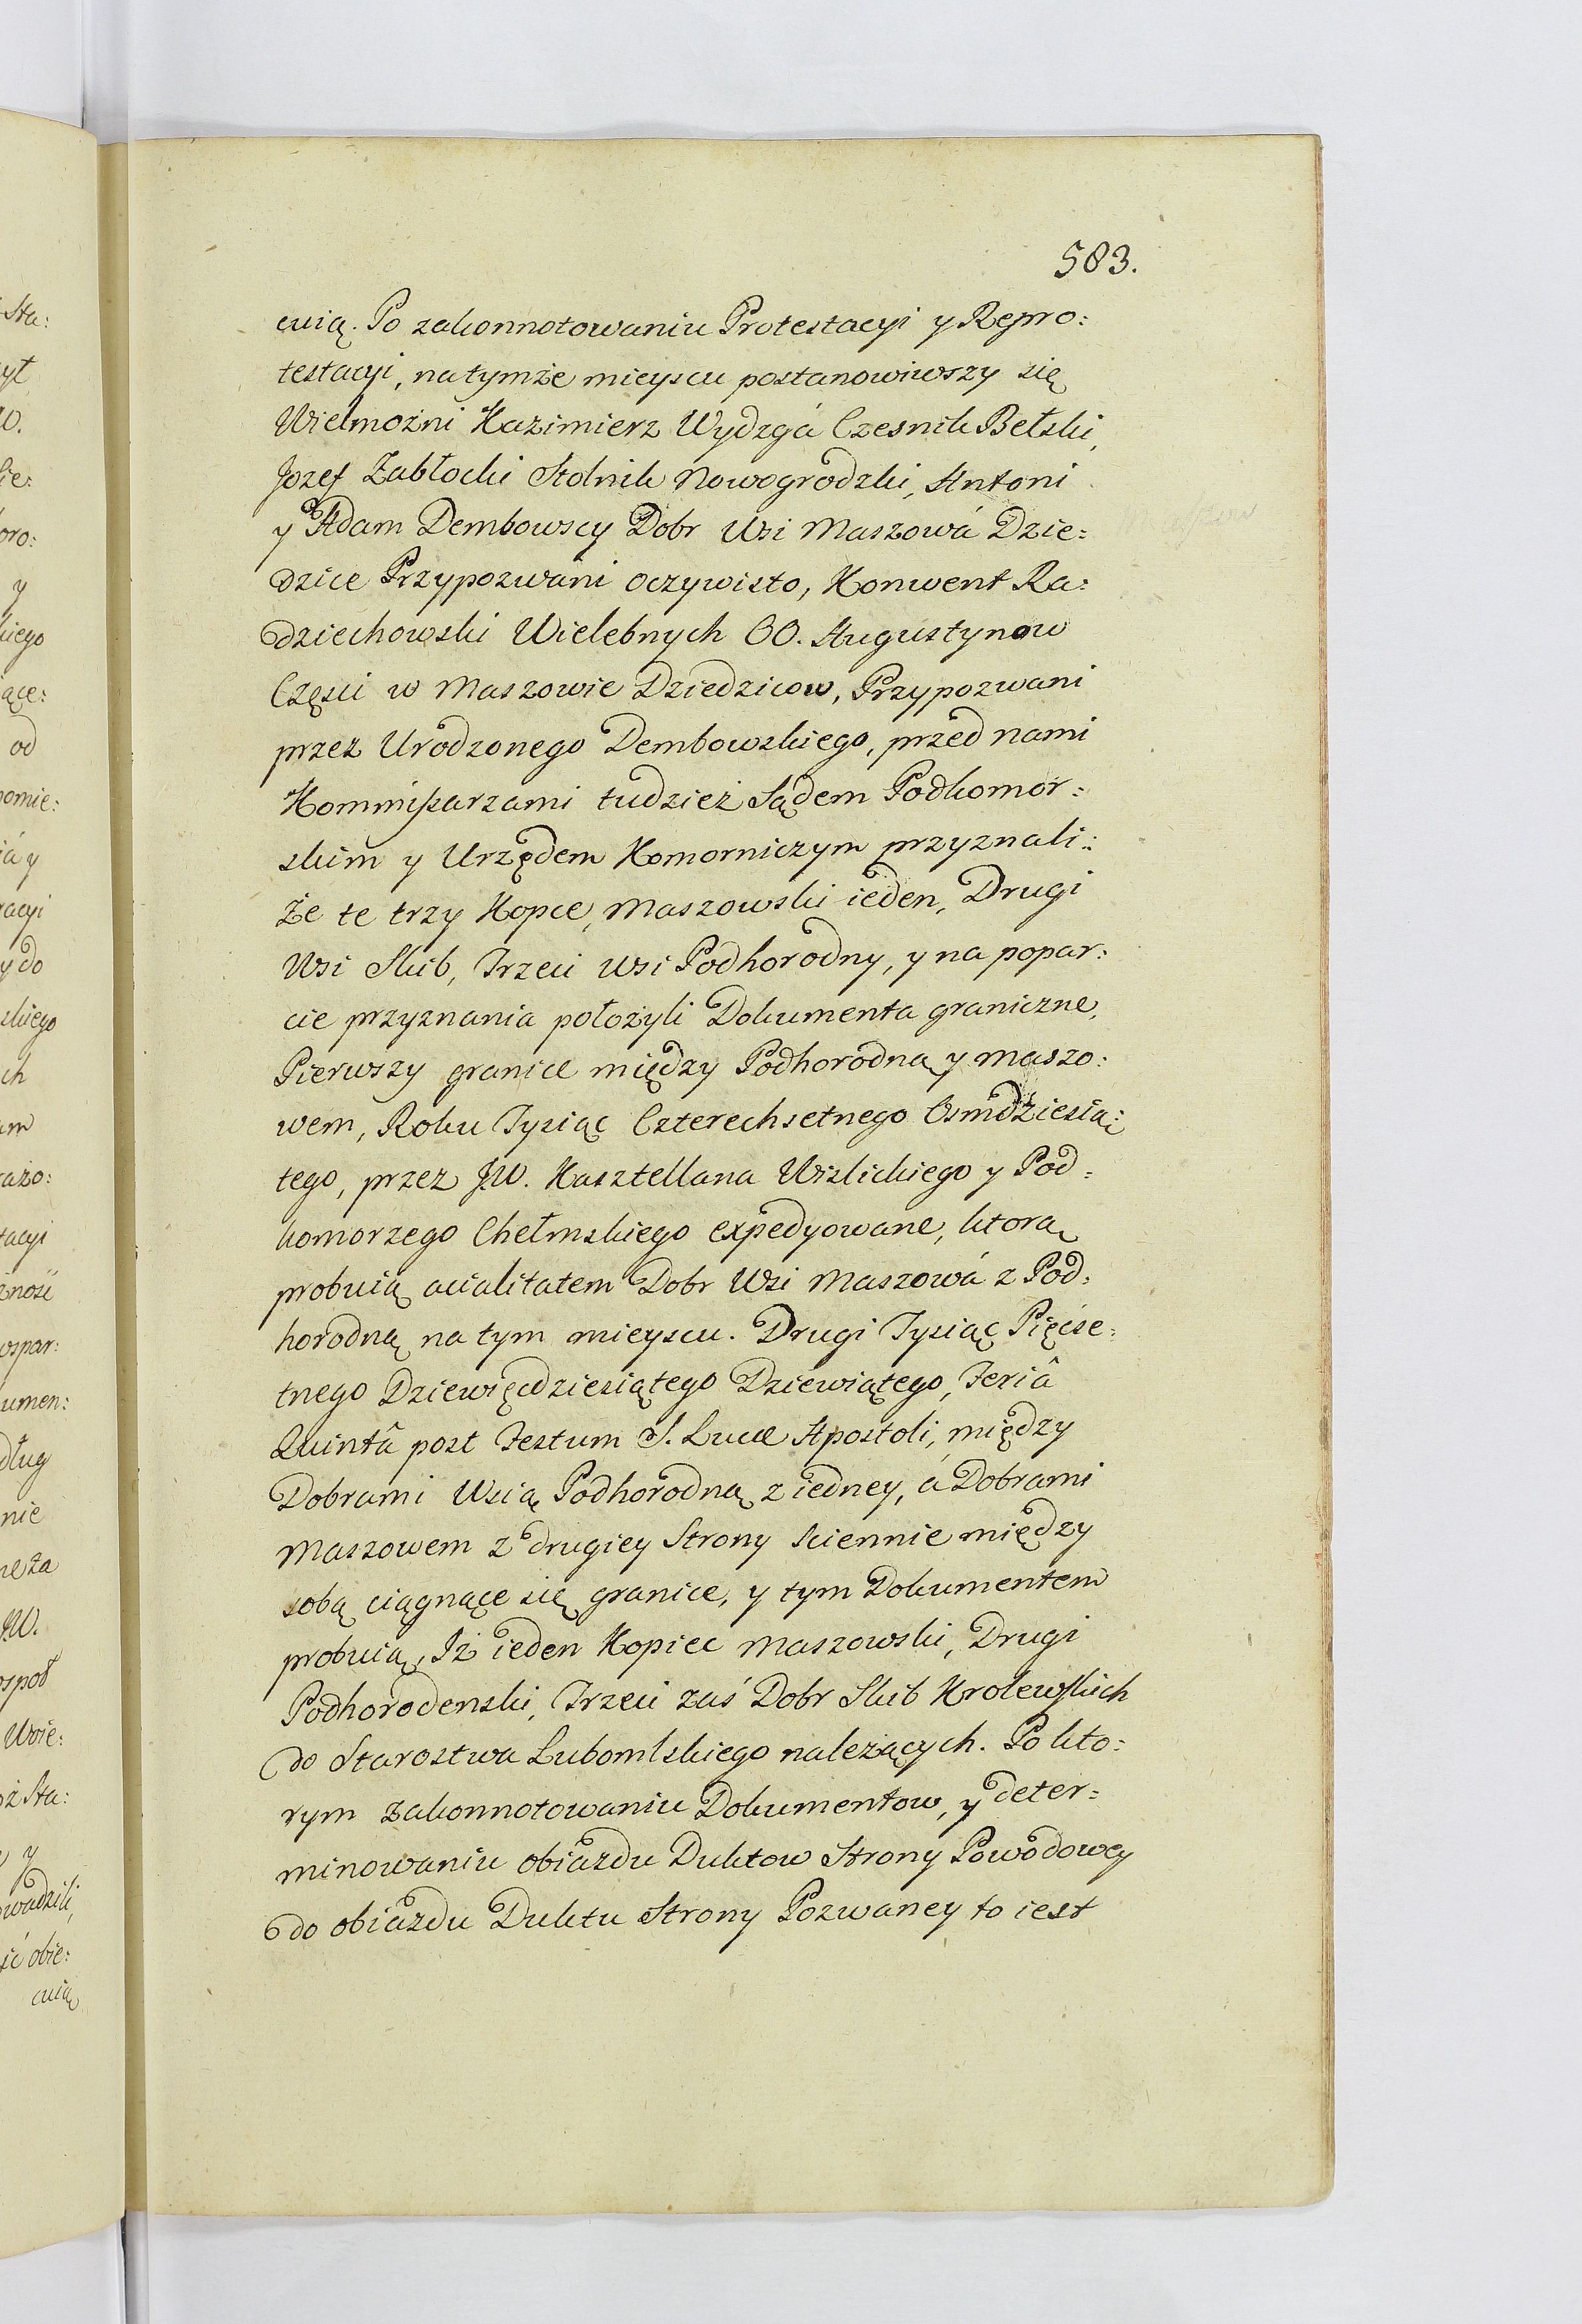 583.
cuią. Po zakonnotowaniu Protestacyi y Repro:
testacyi, na tymże mieyscu postanowiwszy się
Wielmożni Kazimierz Wydzgá Czesnik Bełski,
Jozef Zabłocki Stolnik Nowogrodzki, Antoni
y Adam Dembowscy Dobr Wsi Maszowá Dzie:
dzice Przypozwani oczywisto, Konwent Ra:
dziechowski Wielebnych OO. Augustynow
Częsci w Maszowie Dziedzicow, Przypozwani
przez Urodzonego Dembowskiego, przed nami
Kommißarzami tudzież Sądem Podkomor:
skim y Urzędem Komorniczym przyznali:
Że te trzy Kopce, Maszowski ieden, Drugi
Wsi Skib, Trzeci Wsi Podhorodny, y na popar:
cie przyznania położyli Dokumenta graniczne,
Pierwszy granice między Podhorodną y Maszo:
wem, Roku Tysiąc Czterechsetnego Osmdziesią:
tego, przez J.W. Kasztellana Wislickiego y Pod:
komorzego Chełmskiego expedyowane, ktorą
probuią acialitatem Dobr Wsi Maszowá z Pod:
horodną na tym mieyscu. Drugi Tysiąc Pięćse:
tnego Dziewięcdziesiątego Dziewiątego, Feriâ
Quintâ post Festum S. Lucæ Apostoli, między
Dobrami Wsią Podhorodną z iedney, á Dobrami
Maszowem z drugiey Strony sciennie między
sobą ciągnące się granice, y tym Dokumentem
probuią, Iż ieden Kopiec Maszowski, Drugi
Podhorodenski, Trzeci zaś Dobr Skib Krolewskich
do Starostwa Lubomlskiego należących. Po kto:
rym zakonnotowaniu Dokumentow, y deter:
minowaniu obiazdu Duktow Strony Powodowey
do obiazdu Duktu Strony Pozwaney to iest